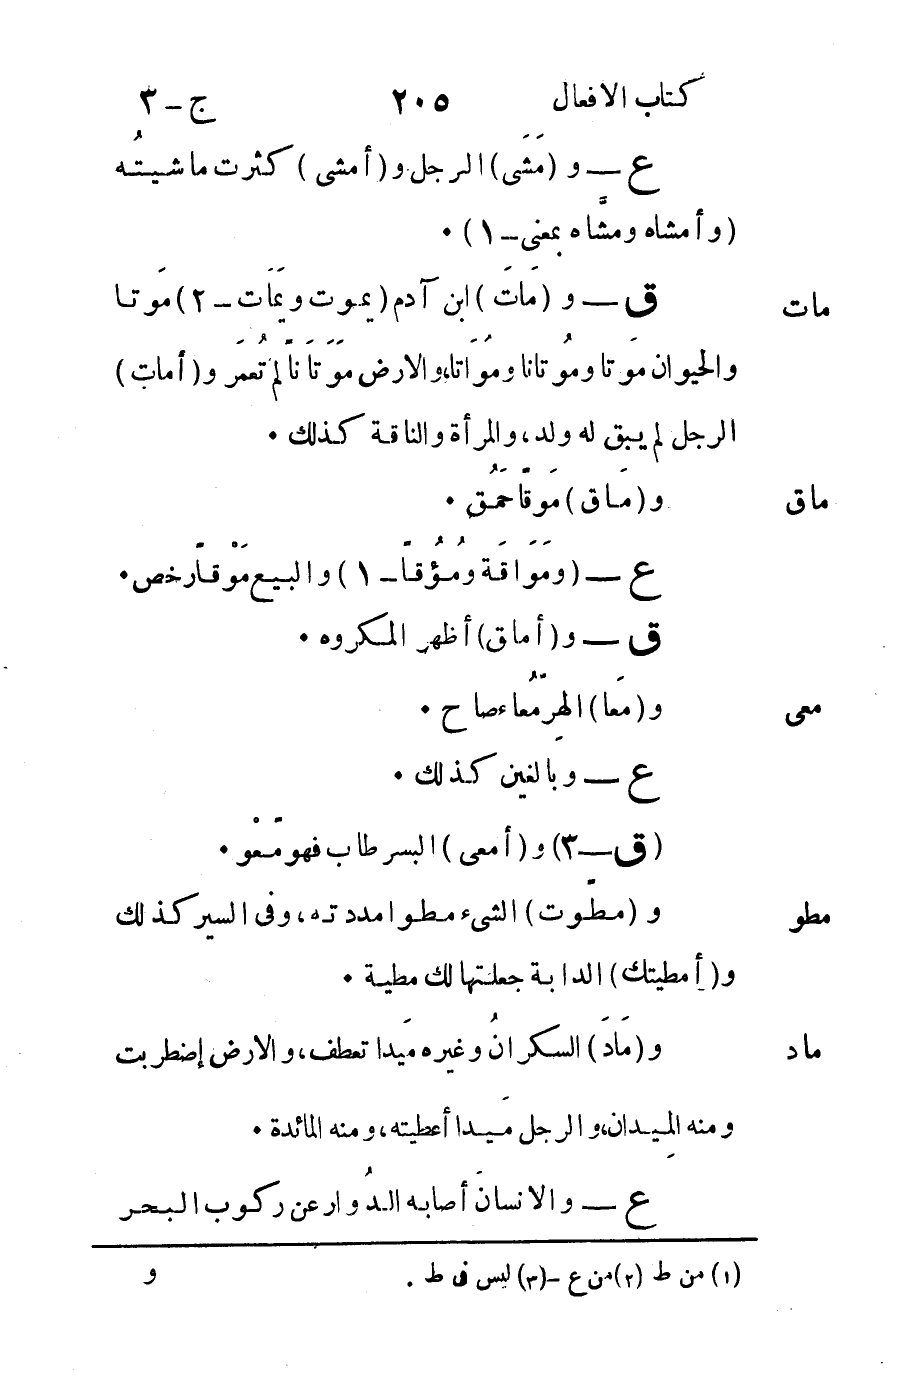 كتاب الافعال ٢٠٥ ج-٣
ع ــ و (مَشَى) الرجل و (أمشى) كثرت ماشيتُه
(وأمشاه ومشَّاه بمعنى - ١) •
مات ق ــ و (مَاتَ) ابن آدم (يموت ويَمَات - ٢) مَوتا
والحيوان مَوتا ومُوتانا ومُوَاتا، والارض مَوَتَانًا لم تُعمَر و (أمات)
الرجل لم يبق له ولد، والمرأة والناقة كذلك •
ماق و (مَاق) مَوقًا حَمُق •
ع ــ (ومَوَاقَة ومُؤُقًا - ١) والبيع مَوْقًا رخص •
ق ــ و (أماق) أظهر المكروه •
معى و (مَعا) الهِرّ مُعاء صاح •
ع ــ وبالغين كذلك •
(ق ــ ٣) و (أمعى) البسر طاب فهو مَعْو •
مطو و (مطَوت) الشىء مطوا مددته، وفى السير كذلك
و (أمطيتك) الدابة جعلتها لك مطية •
ماد و (مَادَ) السكرانُ وغيره مَيدا تعطف، والارض إضطربت
ومنه المِيدان، والرجل مَيدا أعطيته، ومنه المائدة •
ع ــ والانسانَ أصابه الدُوار عن ركوب البحر
(١) من ط (٢) من ع - (٣) ليس فى ط .
و